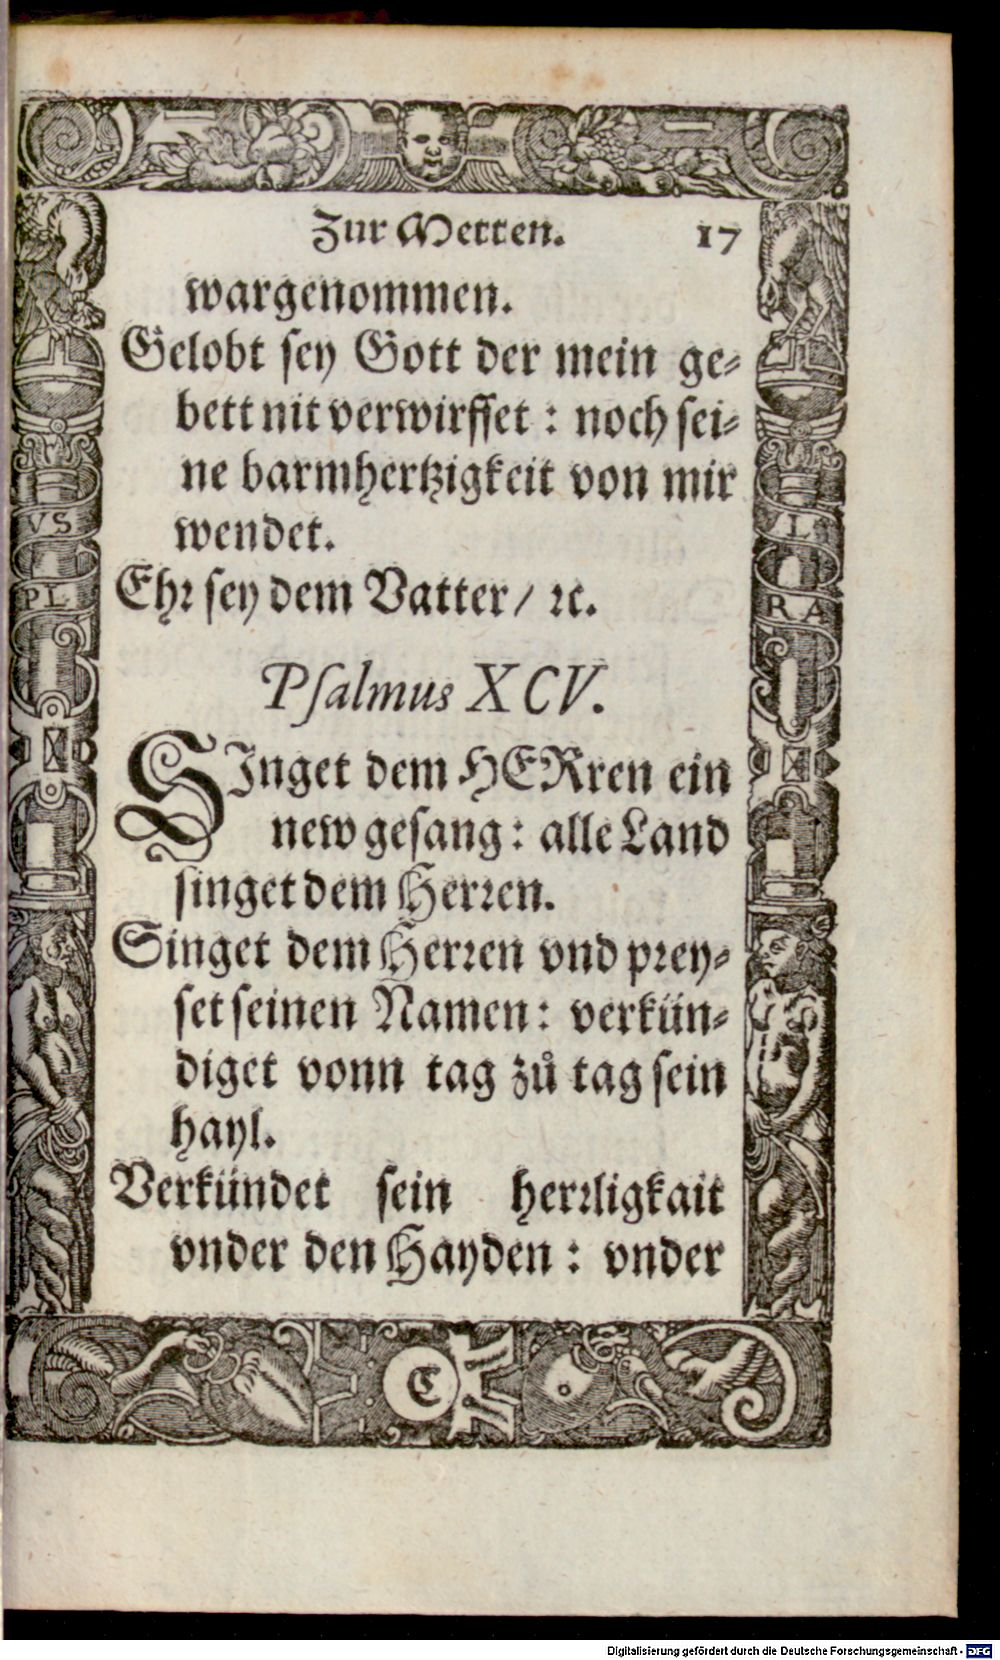 Zur Metten. 17
wargenommen.
Gelobt sey Gott der mein ge-
bett nit verwirffet : noch sei-
ne barmhertzigkeit von mir
wendet.
Ehr sey dem Vatter / ꝛc.
Psalmus XCV.
SInget dem HERren ein
new gesang : alle Land
singet dem Herren.
Singet dem Herren vnd prey-
set seinen Namen : verkün-
diget vonn tag zů tag sein
hayl.
Verkündet sein herrligkait
vnder den Hayden : vnder
VS
PL
VL
RA
C
Digitalisierung gefördert durch die Deutsche Forschungsgemeinschaft - DFG